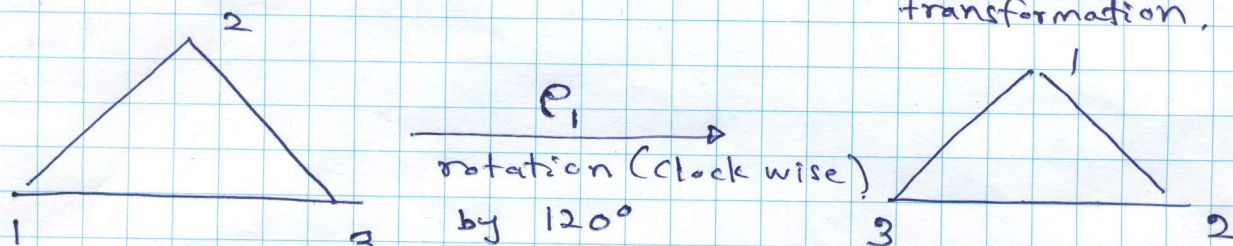 transformation.
2
1
ρ₁
rotation (Clock wise)
by 120°
1
3
3
2